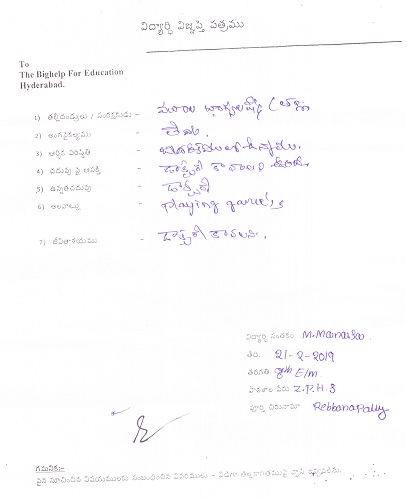 విద్యార్ధి విజ్ఞప్తి పత్రము
To
The Bighelp For Education
Hyderabad.
1) తల్లిదండ్రులు / సంరక్షకుడు -
2) అంగవైకల్యము - లేదు.
3) ఆర్థిక పరిస్థితి -
4) చదువు పై ఆసక్తి - డాక్టర్ కావాలని ఉంది.
5) ఉన్నతచదువు - డాక్టర్
6) అలవాట్లు - Playing games
7) జీవితాశయము - డాక్టర్ కావలని.
విద్యార్ధి సంతకం M.
తేది. 21-2-2019
తరగతి 8th E/m
పాఠశాల పేరు Z.P.H.S
పూర్తి చిరునామా Rebbanapally
గమనిక:-
పైన సూచించిన విషయములకు సంబంధించిన వివరములు - విడిగా తెల్లకాగితముపై వ్రాసి ఇవ్వవలెను.